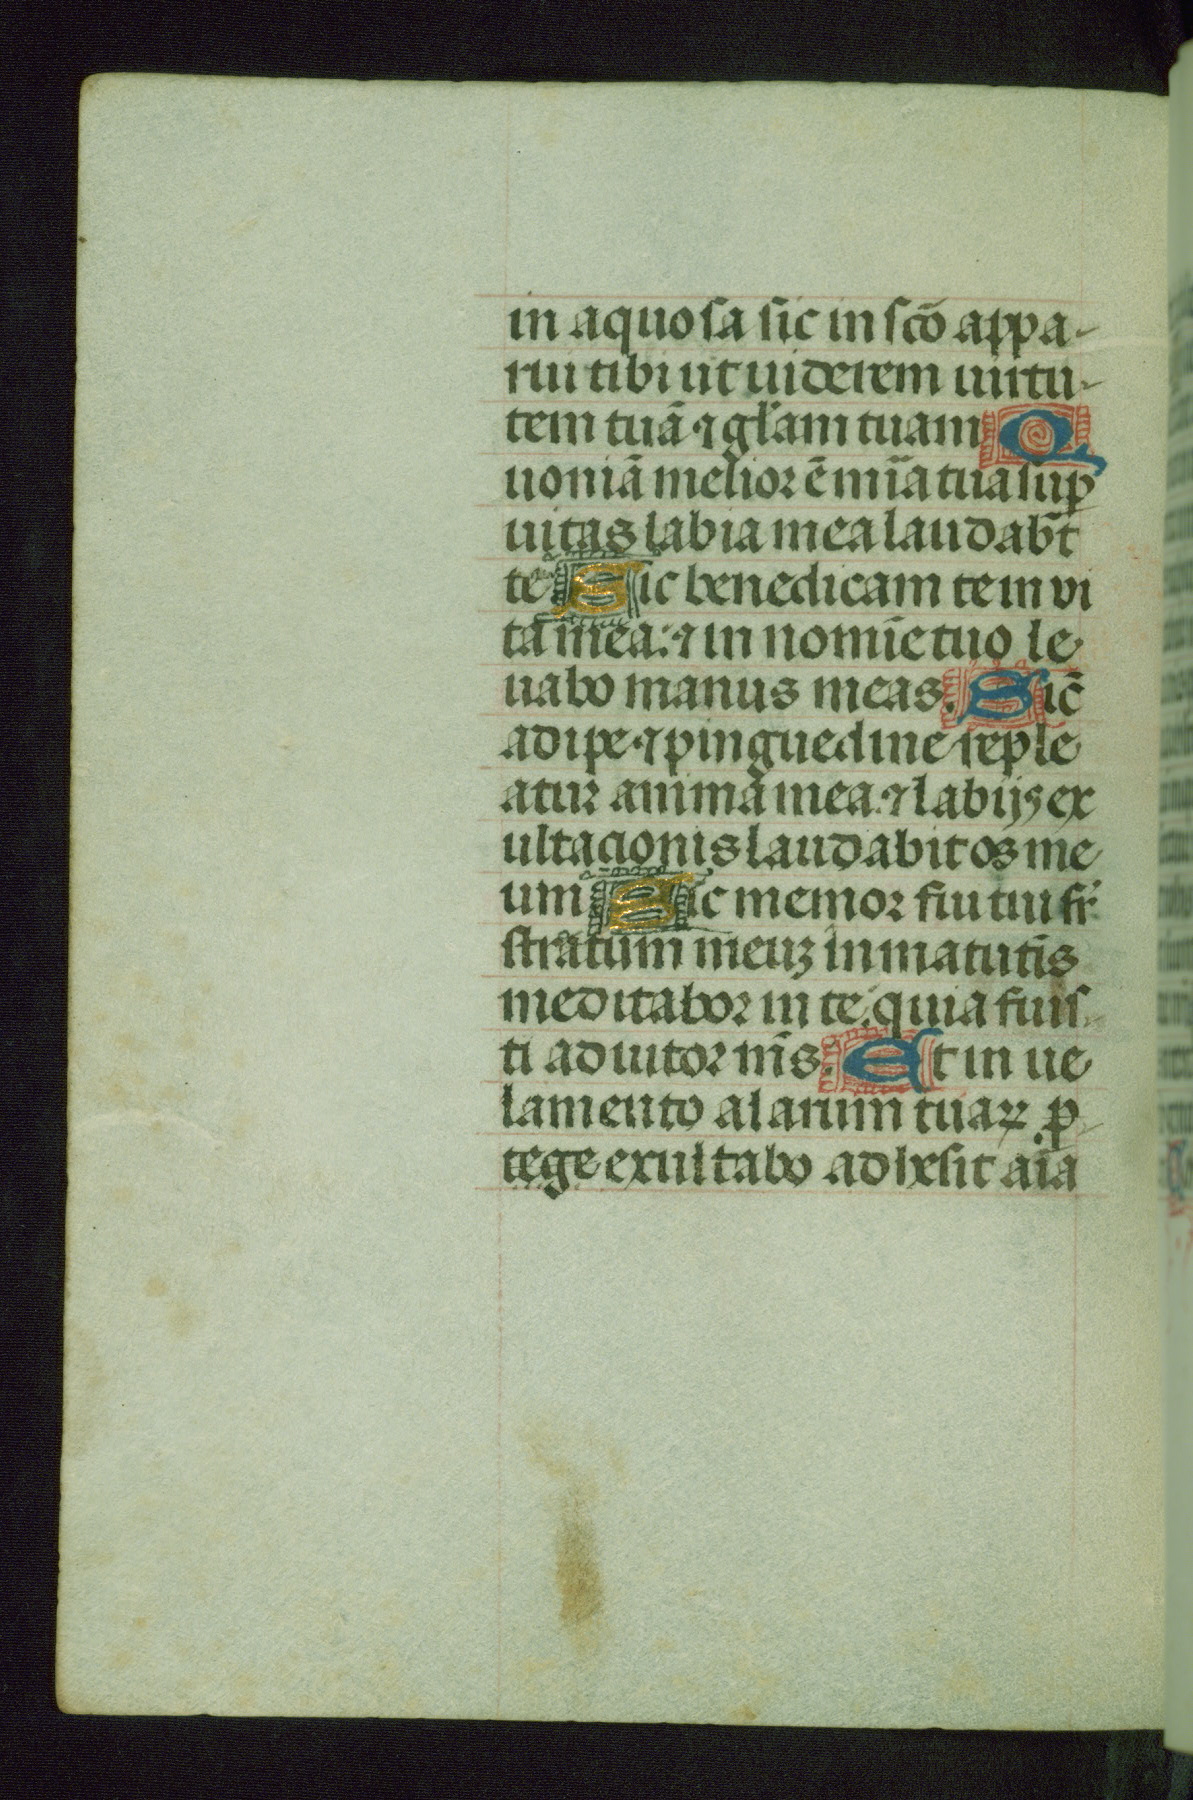 in aquosa sic in scō appa-
rui tibi ut uiderem uirtu-
tem tuā ⁊ gl̄am tuam Q
uoniā melior ē mīa tua sup̄
uitas labia mea laudabt̄
te Sic benedicam te in vi
ta mea: ⁊ in nomīe tuo le
uabo manus meas. Sic̄
adipe ⁊ pinguedine reple
atur anima mea. ⁊ labijs ex
ultacionis laudabit os me
um Sic memor fui tui sr̄
stratum meuz in matutīs
meditabor in te: quia fuis
ti adiutor m̄s. Et in ue
lamento alarum tuaꝝ p̄
tege exultabo adhesit aīa